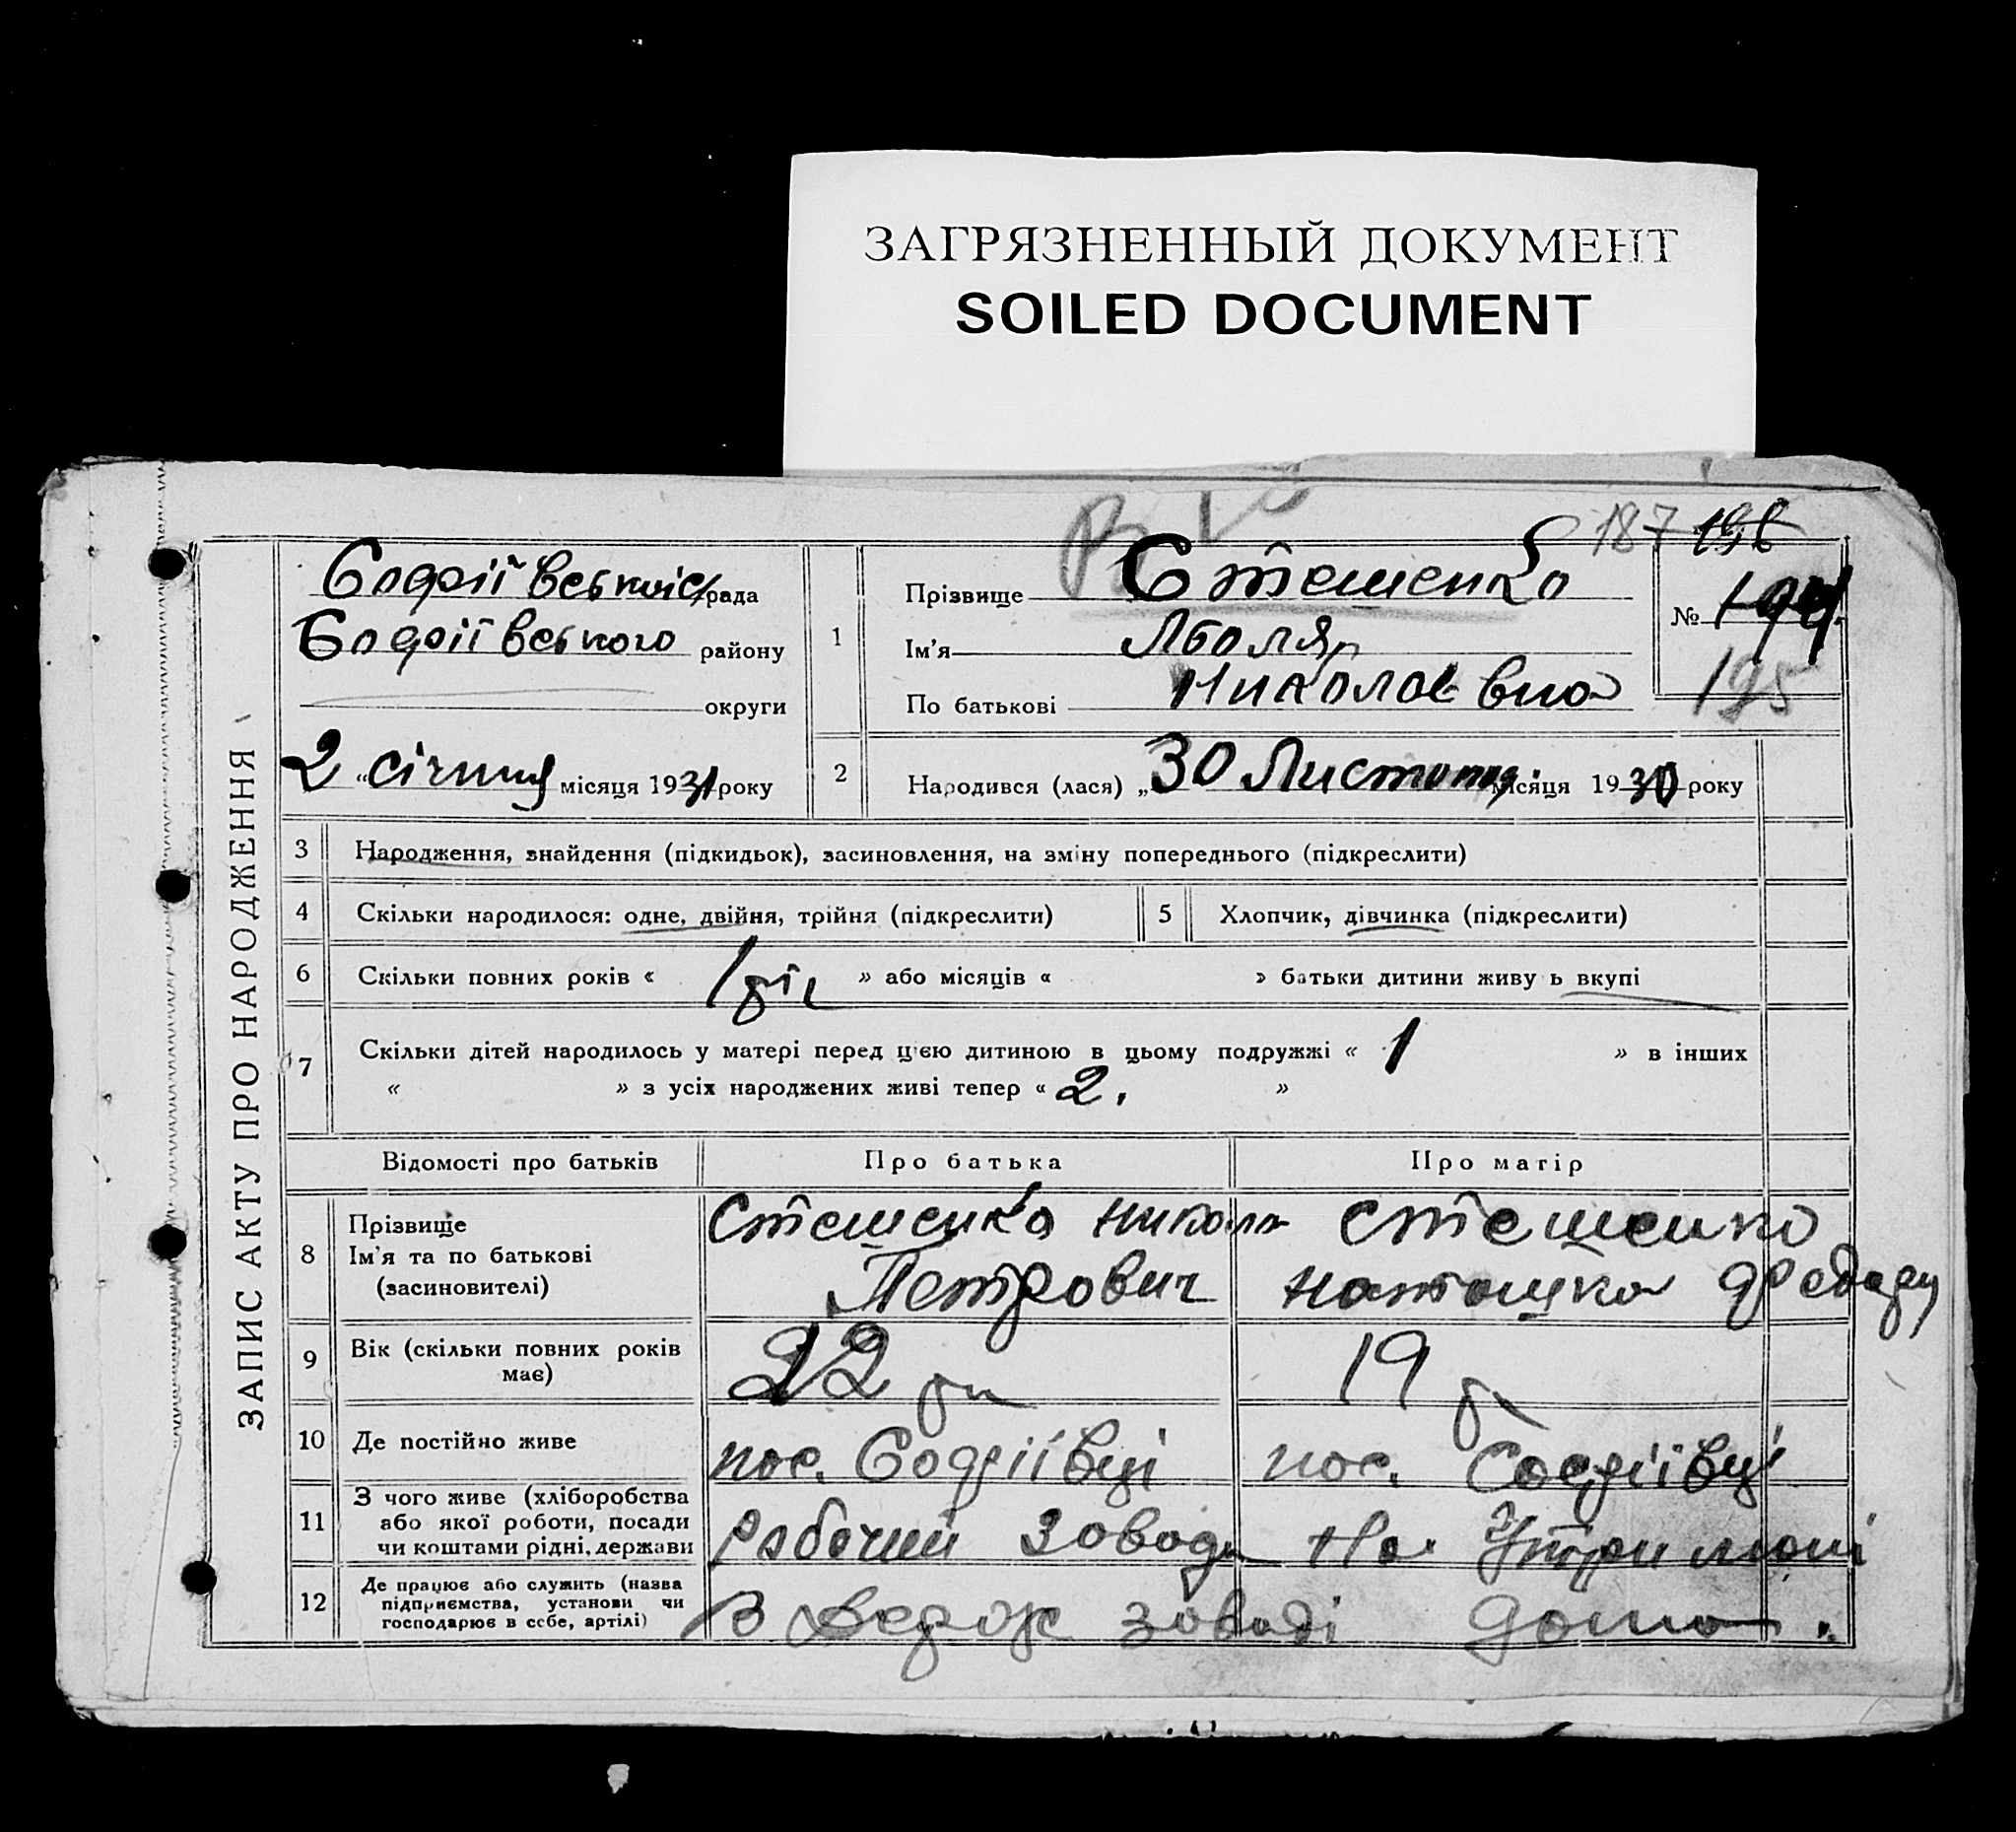 ЗАГРЯЗНЕННЫЙ ДОКУМЕНТ
SOILED DOCUMENT
187 196
ЗАПИС АКТУ ПРО НАРОДЖЕННЯ
Софіївської с/рада
Софіївського району
округи
2 " січня місяця 1931 року
1
Прізвище Стешенко
Ім'я
По батькові Николаевна
№ 194
195
2
Народився (лася) „ 30 Листопад. місяця 1930 року
3 Народження, знайдення (підкидьок), засиновлення, на зміну попереднього (підкреслити)
4 Скільки народилося: одне, двійня, трійня (підкреслити)
5 Хлопчик, дівчинка (підкреслити)
6 Скільки повних років « 1 рік » або місяців « » батьки дитини живу ь вкупі
7 Скільки дітей народилось у матері перед цією дитиною в цьому подружжі « 1 » в інших
« » з усіх народжених живі тепер « 2. »
Відомості про батьків Про батька Про матір
8 Прізвище
Ім'я та по батькові
(засиновителі)
Стешенко Никола
Петрович
Стешенко
Наташка
9 Вік (скільки повних років
має)
22
19
10 Де постійно живе
пос. Софіївці
пос. Софіївці
11 З чого живе (хліборобства
або якої роботи, посади
чи коштами рідні, держави
Рабочий Завода
На Утримані
12 Де працює або служить (назва
підприємства, установи чи
господарює в себе, артілі)
В Держ заводі
дома.